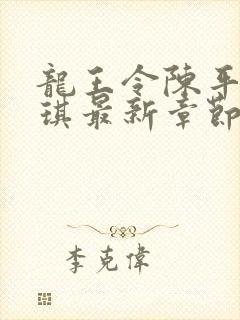 龍王令陳平
琪最新章節
李克偉